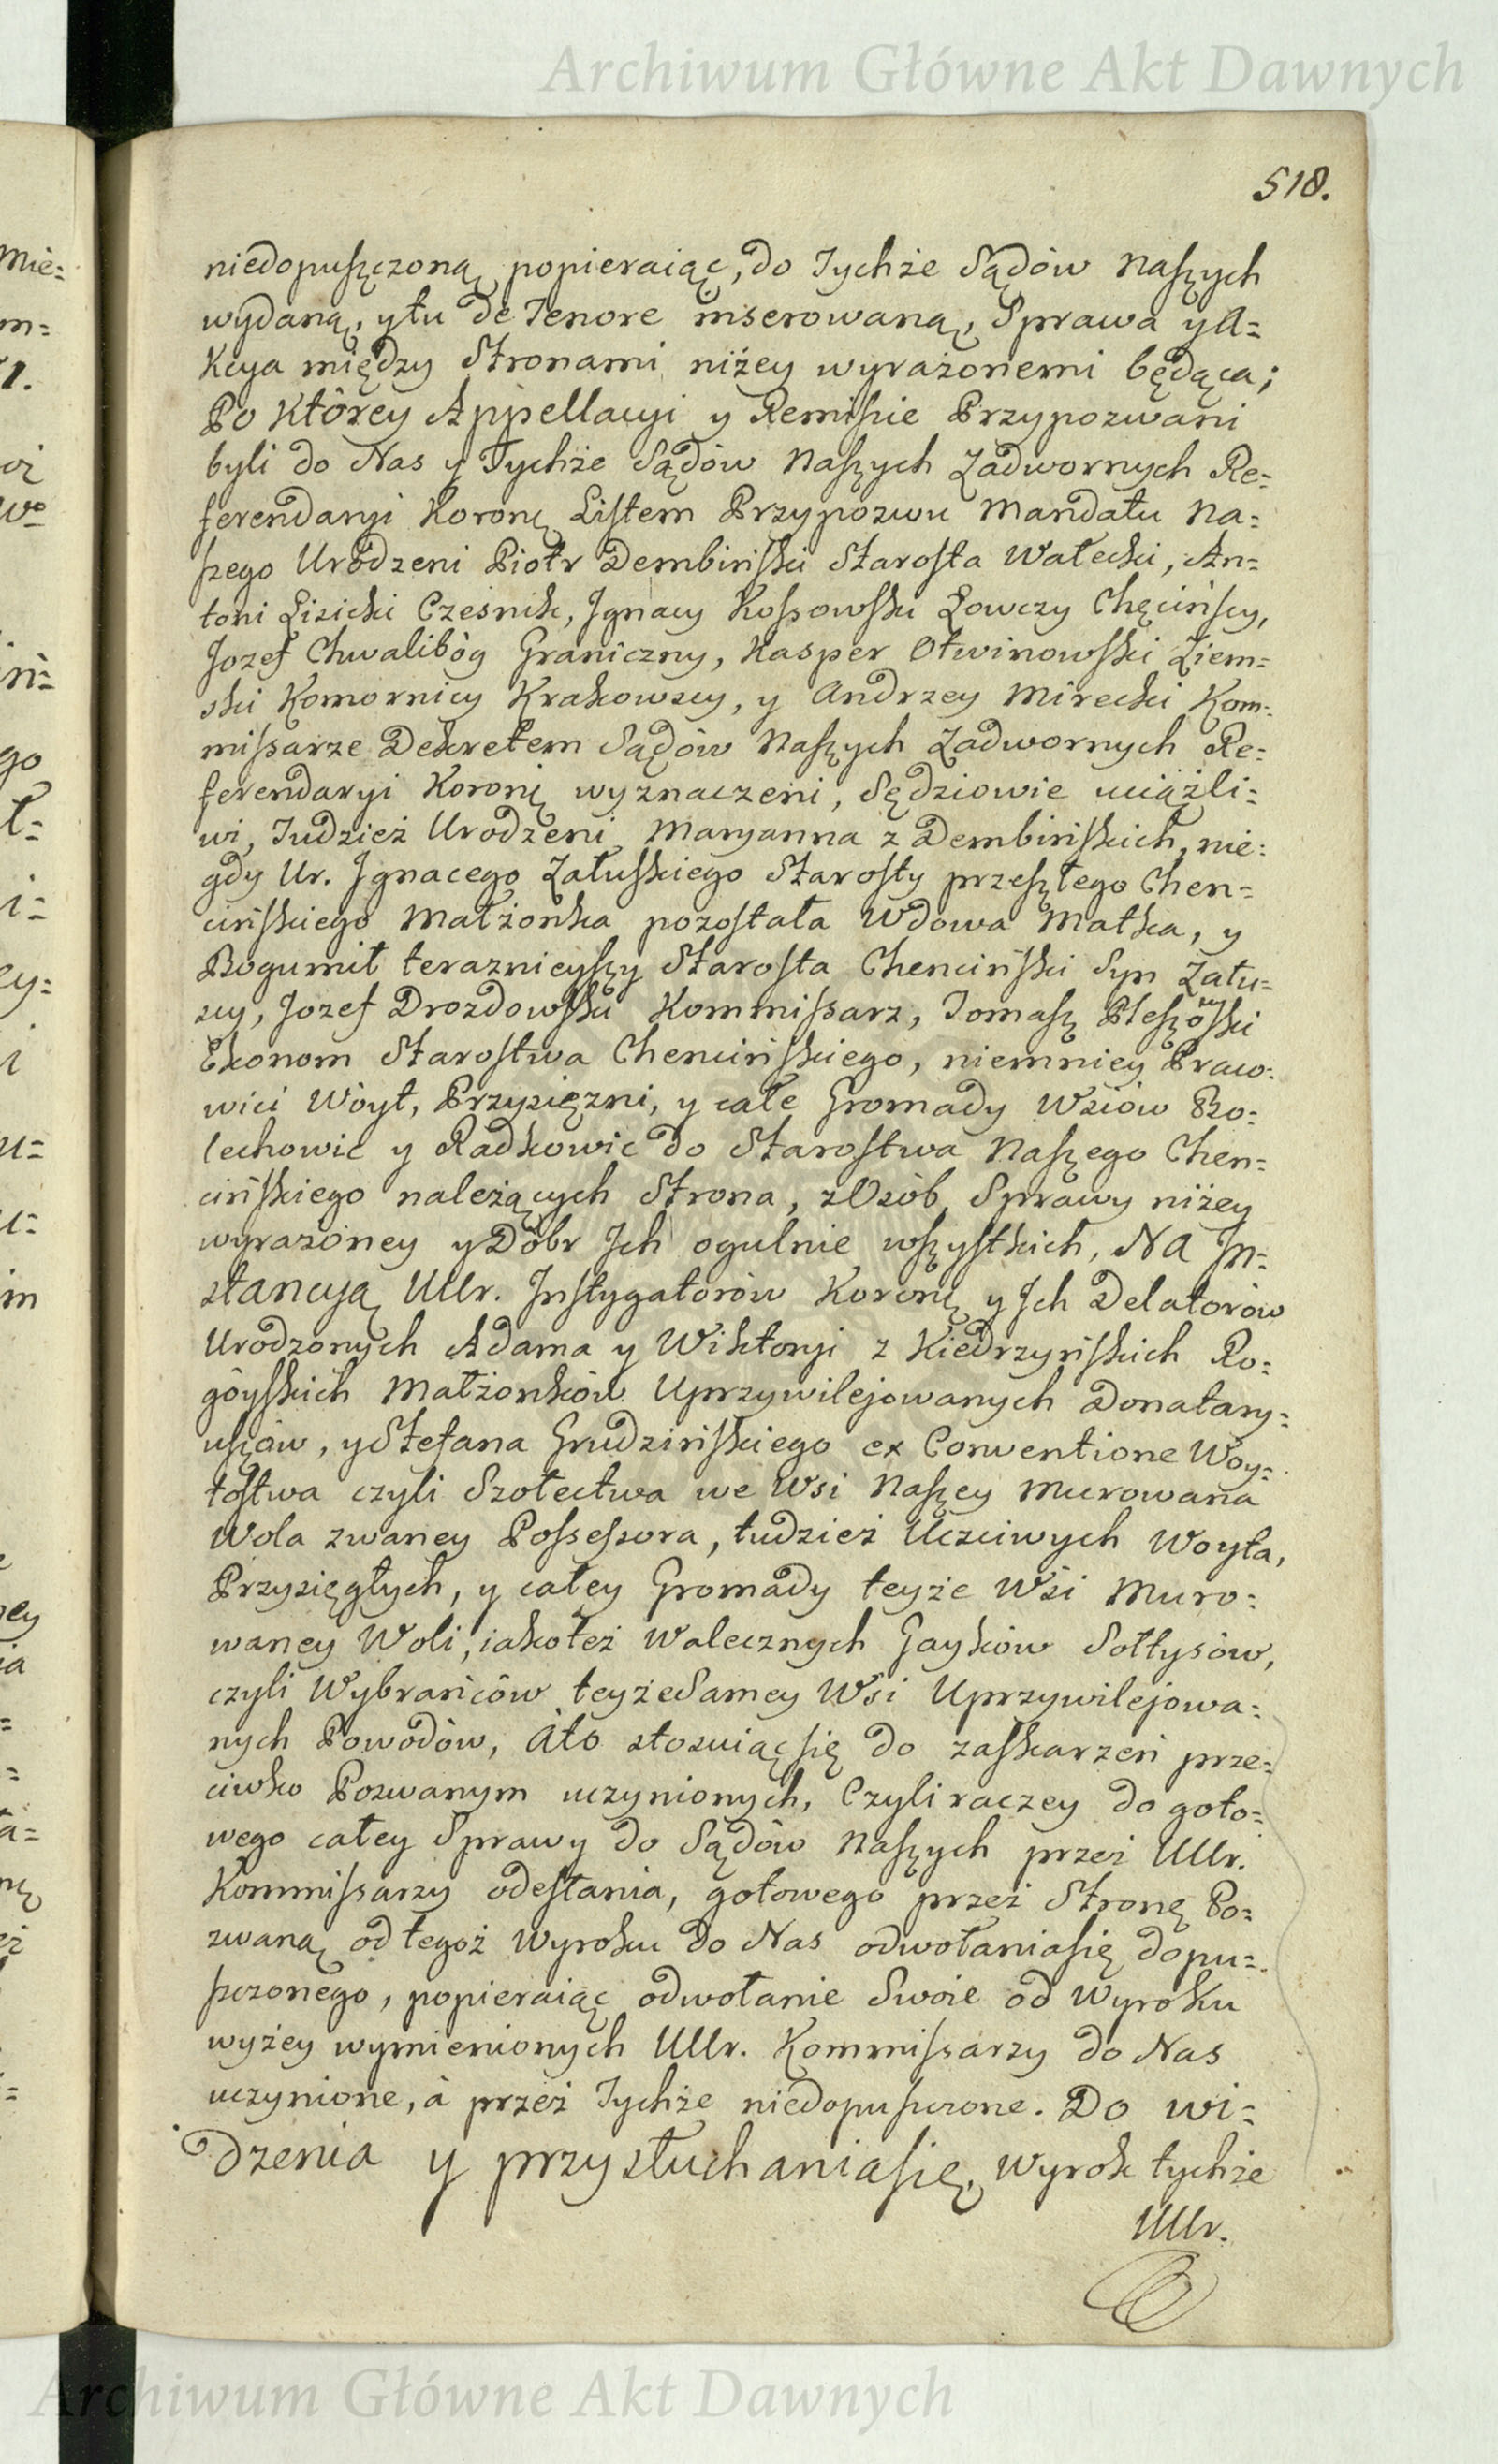 Archiwum Główne Akt Dawnych
518.
niedopuszczoną popieraiąc, do Tychże Sądów Naszych
wydaną, y tu de Tenore inserowaną, Sprawa y A=
kcya między Stronami niżey wyrażonemi będąca;
Po którey Appellacyi y Remissie Przypozwani
byli do Nas y Tychże Sądów Naszych Zadwornych Re=
ferendaryi Koronę Listem Przypozwu Mandatu Na=
szego Urodzeni Piotr Dembiński Starosta Wałecki, An=
toni Lisicki Cześnik, Ignacy Kossowski Łowczy Chęcińscy,
Jozef Chwalibóg Graniczny, Kasper Otwinowski Ziem=
ski Komornicy Krakowscy, y Andrzey Mirecki Kom=
missarze Dekretem Sądów Naszych Zadwornych Re=
ferendaryi Koronę wyznaczeni, Sędziowie uciążli=
wi, Tudzież Urodzeni Maryanna z Dembińskich, nie=
gdy Ur. Ignacego Załuskiego Starosty przeszłego Chen=
cińskiego Małżonka pozostała Wdowa Matka, y
Bogumił teraznieyszy Starosta Chenciński Syn Zału=
scy, Jozef Drozdowski Kommissarz, Tomasz
Ekonom Starostwa Chencińskiego, niemniey Praco=
wici Wóyt, Przysiężni, y całe Gromady Wsiów Bo=
lechowic y Radkowic do Starostwa Naszego Chen=
cińskiego należących Strona, z Osób, Sprawy niżey
wyrażoney y Dóbr Ich ogulnie wszystkich, NA In=
stancyą UUr. Instygatorów Koronę y Ich Delatorów
Urodzonych Adama y Wiktoryi z Kiedrzyńskich Ro=
góyskich Małżonków Uprzywilejowanych Donatary=
uszów, y Stefana Grudzińskiego ex Conventione Woy=
tostwa czyli Szołectwa we Wsi Naszey Murowana
Wola zwaney Possessora, tudzież Uczciwych Woyta,
Przysięgłych, y całey Gromady teyże Wsi Muro=
waney Woli, iakoteż Walecznych Gayków Sołtysów,
czyli Wybrańców teyże Samey Wsi Uprzywilejowa=
nych Powodów, Ato stosuiąc się do zaskarzeń prze=
ciwko Pozwanym uczynionych, Czyli raczey do goto=
wego całey Sprawy do Sądów Naszych przez UUr.
Kommissarzy odesłania, gotowego przez Stronę Po=
zwaną od tegoż Wyroku do Nas odwołania się dopu=
szczonego, popieraiąc odwołanie Swoie od Wyroku
wyżey wymienionych UUr. Kommissarzy do Nas
uczynione, à przez Tychże niedopuszczone. Do wi=
dzenia y przysłuchania się, Wyrok tychże
UUr.
Archiwum Główne Akt Dawnych